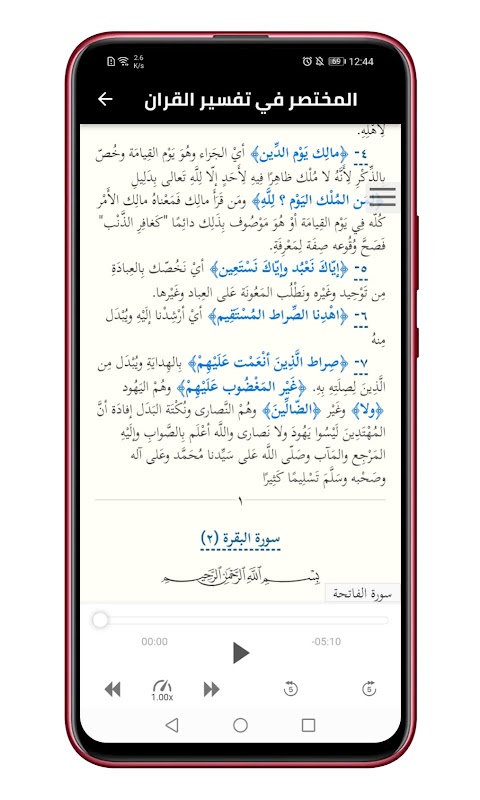 2.6
K/s
69 12:44
المختصر في تفسير القران
لِأَهْلِهِ.
٤- ﴿مالِك يَوْم الدِّين﴾ أيْ الجَزاء وهُوَ يَوْم القِيامَة وخُصّ
بِالذِّكْرِ لِأَنَّهُ لا مُلْك ظاهِرًا فِيهِ لِأَحَدٍ إلّا لِلَّهِ تَعالى بِدَلِيلِ
المُلْك اليَوْم ؟ لِلَّهِ﴾ ومَن قَرَأَ مالِك فَمَعْناهُ مالِك الأَمْر
كُلّه فِي يَوْم القِيامَة أوْ هُوَ مَوْصُوف بِذَلِك دائِمًا "كَغافِرِ الذَّنْب"
فَصَحَّ وُقُوعه صِفَة لِمَعْرِفَةِ.
٥- ﴿إيّاكَ نَعْبُد وإيّاكَ نَسْتَعِين﴾ أيْ نَخُصّك بِالعِبادَةِ
مِن تَوْحِيد وغَيْره ونَطْلُب المَعُونَة عَلى العِباد وغَيْرها.
٦- ﴿اهْدِنا الصِّراط المُسْتَقِيم﴾ أيْ أرْشِدْنا إلَيْهِ ويُبْدَل
مِنهُ
٧- ﴿صِراط الَّذِينَ أنْعَمْت عَلَيْهِمْ﴾ بِالهِدايَةِ ويُبْدَل مِن
الَّذِينَ لِصِلَتِهِ بِهِ. ﴿غَيْر المَغْضُوب عَلَيْهِمْ﴾ وهُمْ اليَهُود
﴿ولا﴾ وغَيْر ﴿الضّالِّينَ﴾ وهُمْ النَّصارى ونُكْتَة البَدَل إفادَة أنَّ
المُهْتَدِينَ لَيْسُوا يَهُودَ ولا نَصارى واللَّه أعْلَم بِالصَّوابِ وإلَيْهِ
المَرْجِع والمَآب وصَلّى اللَّه عَلى سَيِّدنا مُحَمَّد وعَلى آله
وصَحْبه وسَلَّمَ تَسْلِيمًا كَثِيرًا
١
سورة البقرة (٢)
بِسْمِ اللَّهِ الرَّحْمَٰنِ الرَّحِيمِ
سورة الفاتحة
00:00
-05:10
1.00x
5
5